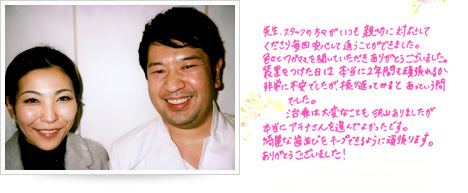 先生、スタッフの方々がいつも親切に対応して
くださり毎回安心して通うことができました。
色々とワガママを聞いていただきありがとうございました。
装置をつけた日は本当に2年間も頑張れるか
非常に不安でしたが、振り返ってみるとあっという間
でした。
治療は大変なことも沢山ありましたが
本当にアラキさんを選んでよかったです。
綺麗な歯並びをキープできるように頑張ります。
ありがとうございました！